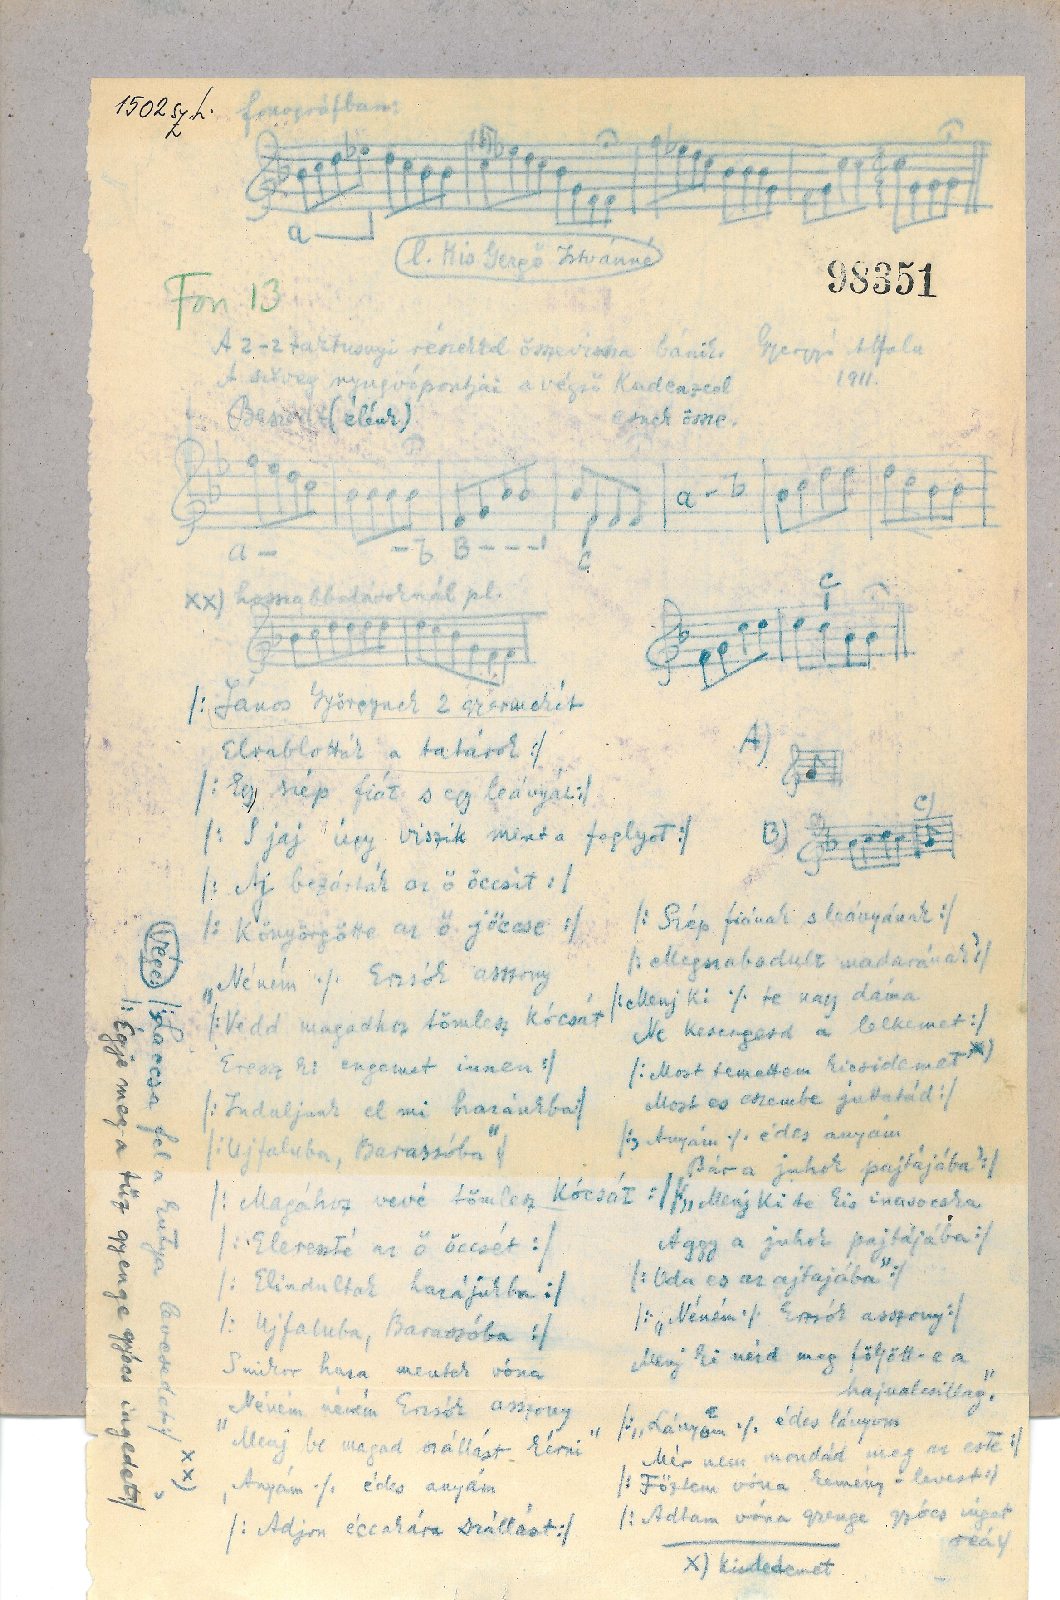 1502 sz. h.
fonográfban:
a
l. Kis Gergő Istvánné
98351
Fon 13
A 2-2 taktusnyi részekkel össze-vissza bánik. Gyergyó Alfalu
A szöveg nyugvópontjai a végső Kadenzcel 1911.
esnek össze.
(élénk)
a - b
a - - b B - - - -
c
xx) hosszabb pl.
c
/: János Györgynek 2 gyermekét
Elrablották a tatárok :/
/: Egy szép fiát s egy leányát :/
/: S jaj úgy viszik mint a foglyot :/
/: Aj bezárták az ő öccsit :/
/: Könyörgötte az ő jöccse :/
„Néném ./. Erzsók asszony
/: Vedd magadhoz tömlesz kócsát
Eressz ki engemet innen :/
/: Induljunk el mi hazánkba :/
/: Ujfaluba, Barassóba" :/
/: Magához vevé tömlesz kócsát :/
/: Eleresté az ő öccsét :/
/: Elindultak hazájukba :/
/: Ujfaluba, Barassóba :/
S mikor haza mentek vóna
Néném néném Erzsók asszony
"Menj be magad szállást kérni"
„Anyám ./. édes anyám
/: Adjon éccakára szállást :/
A)
B)
C)
/: Szép fiának s leányának :/
/: Megszabadult madarának? :/
/: Menj ki ./. te nagy dáma
Ne keseregesd a lelkemet :/
/: Most temettem kicsidemet x)
Most es eszembe juttatád :/
/: „Anyám ./. édes anyám
Bár a juhok pajtájába? :/
/: „Menj ki te kis inasocska
Aggy a juhok pajtájába :/
/: Oda es az ajtajába" :/
/: „Néném ./. Erzsók asszony :/
Menj ki nézd meg följött-e a
hajnalcsillag".
/: „Lányom ./. édes lányom
Mér nem mondád meg az este :/
/: Főztem vóna kemény-levest :/
/: Adtam vóna gyenge gyócs inget
reá :/
x) kisdedemet
Vége: /: Laccsa fel a kutya levesedet :/ xx)
/: Égje meg a tűz gyenge gyócs ingedet :/